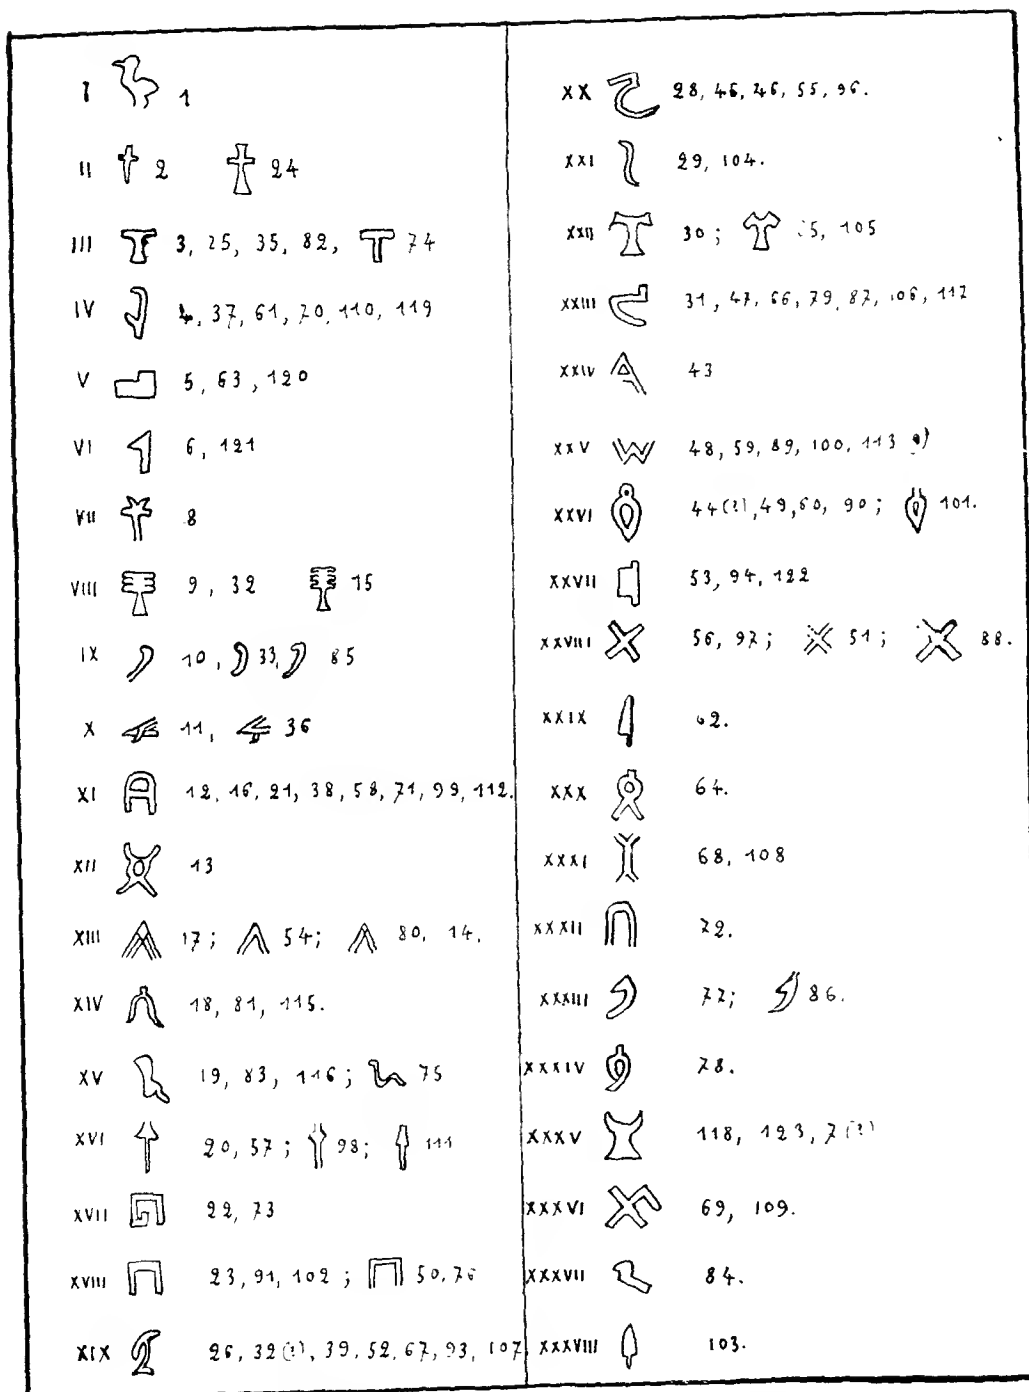 I 1
II 2 24
III 3, 25, 35, 82, 74
IV 4, 37, 61, 70, 110, 119
V 5, 63, 120
VI 6, 121
VII 8
VIII 9, 32 15
IX 10, 33, 85
X 11, 36
XI 12, 16, 21, 38, 58, 71, 99, 112.
XII 13
XIII 17; 54; 80, 14.
XIV 18, 81, 115.
XV 19, 83, 116; 75
XVI 20, 57; 98; 111
XVII 22, 73
XVIII 23, 91, 102; 50, 76
XIX 26, 32(?), 39, 52, 67, 93, 107
XX 28, 45, 46, 55, 96.
XXI 29, 104.
XXII 30; 105
XXIII 31, 47, 66, 79, 87, 106, 117
XXIV 43
XXV 48, 59, 89, 100, 113
XXVI 44(?), 49, 60, 90; 101.
XXVII 53, 94, 122
XXVIII 56, 97; 51; 88.
XXIX 62.
XXX 64.
XXXI 68, 108
XXXII 72.
XXXIII 77; 86.
XXXIV 78.
XXXV 118, 123, 7(?)
XXXVI 69, 109.
XXXVII 84.
XXXVIII 103.